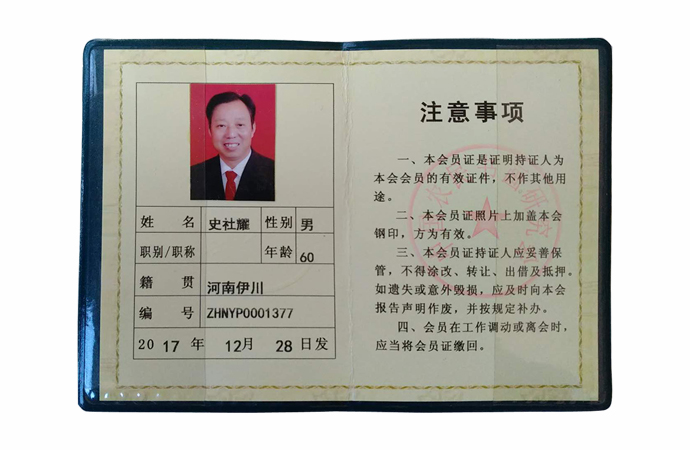 姓 名 史社耀 性别 男
职别/职称 年龄 60
籍 贯 河南伊川
编 号 ZHNYP0001377
2017 年 12月 28日发
注意事项
一、本会员证是证明持证人为
本会会员的有效证件，不作其他用
途。
二、本会员证照片上加盖本会
钢印，方为有效。
三、本会员证持证人应妥善保
管，不得涂改、转让、出借及抵押。
如遗失或意外毁损，应及时向本会
报告声明作废，并按规定补办。
四、会员在工作调动或离会时，
应当将会员证缴回。